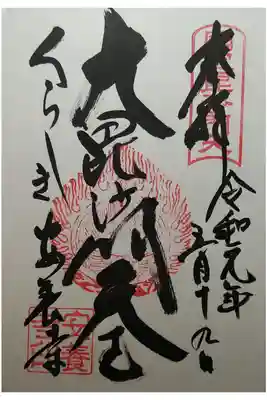 奉拝
令和元年
五月十九日
大毘沙門天
くらしき
安養寺
安養